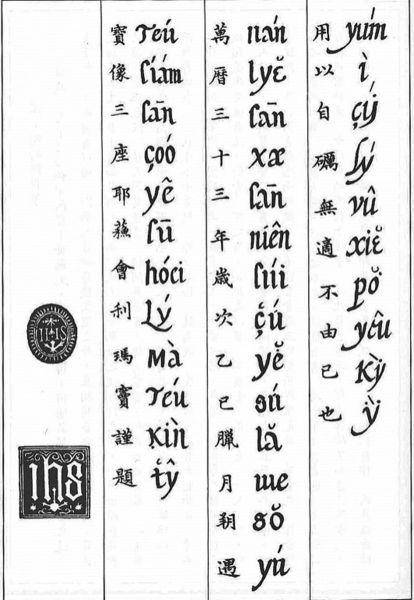 用 yúm 以 ì 自 çú 礪 lý 無 vû 適 xiĕ 不 pŏ 由 yêu 已 kỳ 也 ỳ
萬 nán 曆 lyĕ 三 sān 十 xæ 三 sān 年 niên 歲 súi 次 çú 乙 yĕ 巳 sú 臘 lă 月 iue 朔 sŏ 遇 yú
寶 teú 像 siám 三 sān 座 çoó 耶 yê 蘓 sū 會 hóei 利 Lý 瑪 mà 竇 teú 謹 kìn 題 tŷ
IHS
ihs